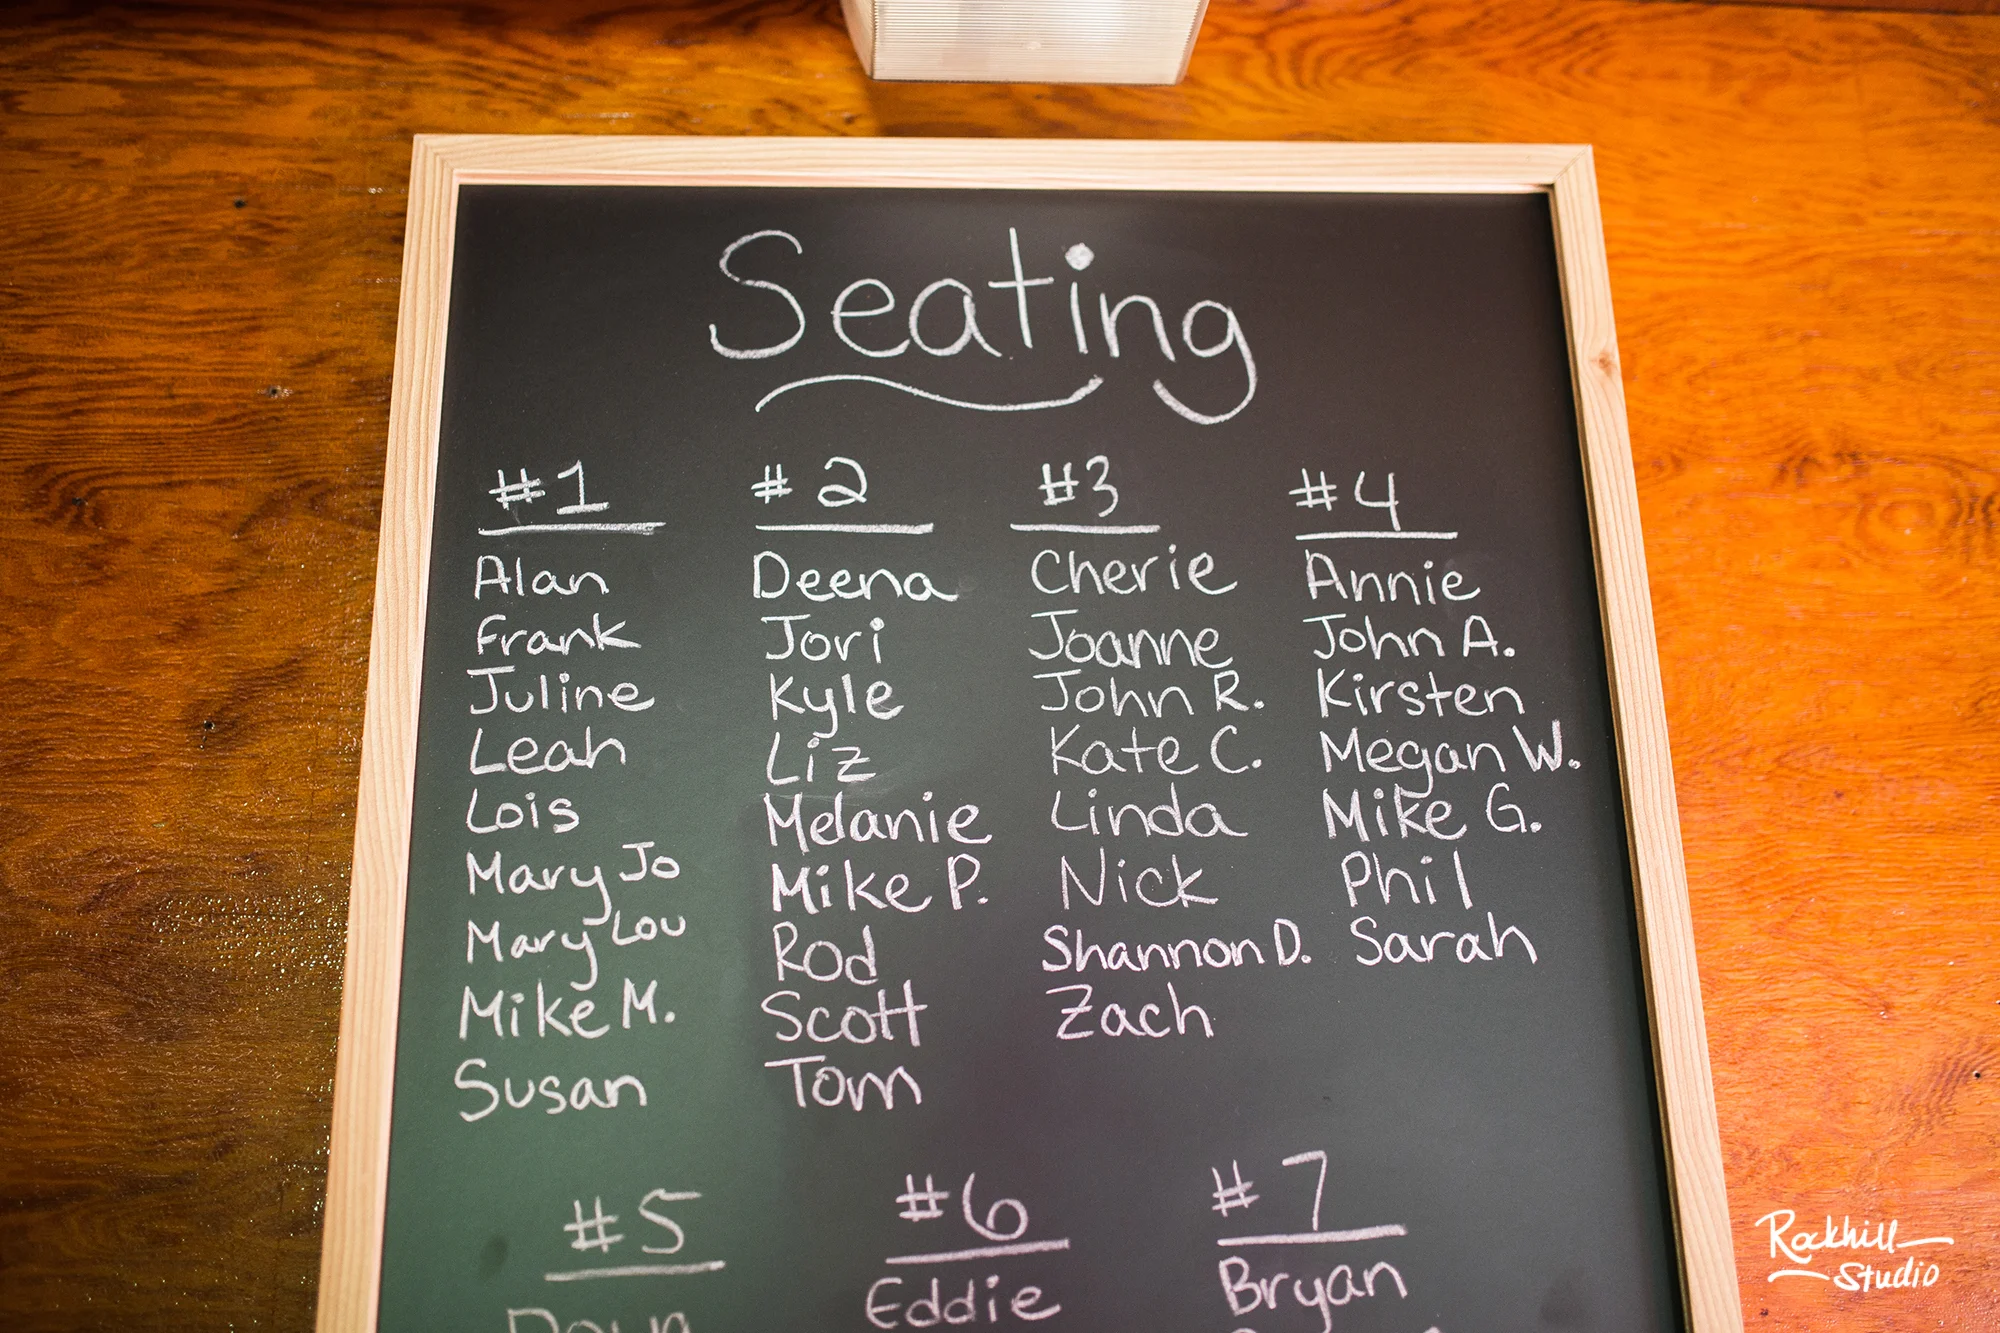 Seating
#1
Alan
Frank
Juline
Leah
Lois
Mary Jo
Mary Lou
Mike M.
Susan
#2
Deena
Jori
Kyle
Liz
Melanie
Mike P.
Rod
Scott
Tom
#3
Cherie
Joanne
John R.
Kate C.
Linda
Nick
Shannon D.
Zach
#4
Annie
John A.
Kirsten
Megan W.
Mike G.
Phil
Sarah
#5
#6
Eddie
#7
Bryan
Rockhill
Studio